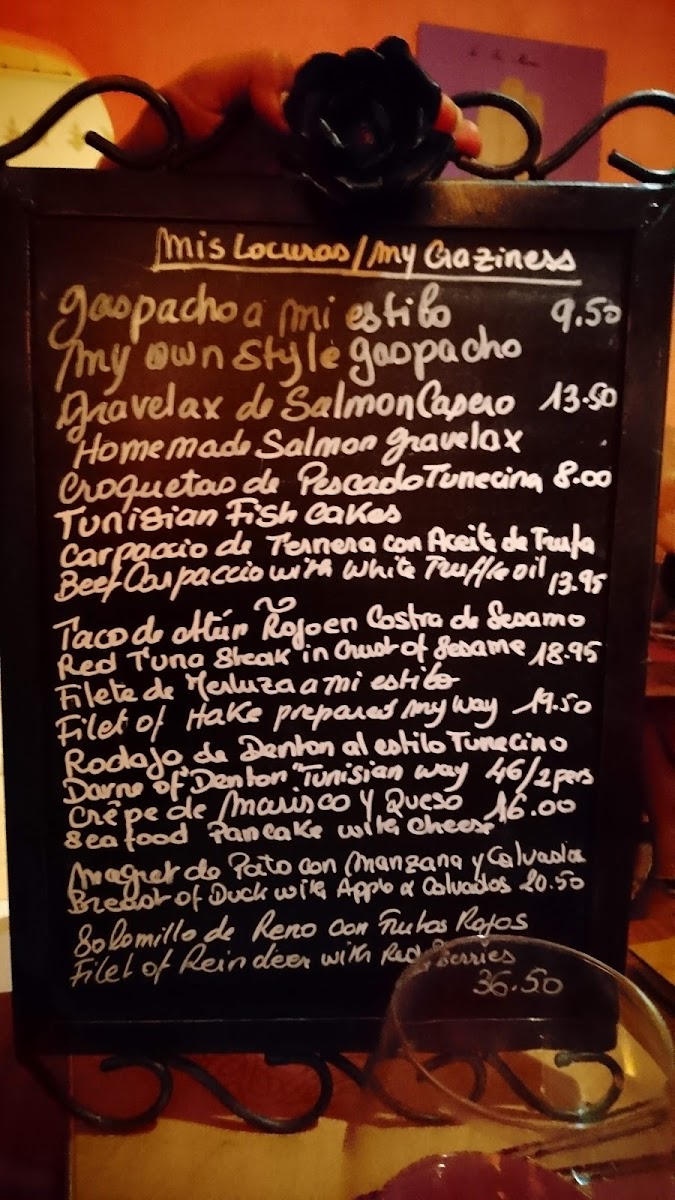 Mis Locuras/My Craziness
gaspacho a mi estilo 9.50
My own style gaspacho
gravelax de Salmon Casero 13.50
Homemade Salmon gravelax
Croquetas de Pescado Tunecina 8.00
Tunisian Fish Cakes
Carpaccio de Ternera con Aceite de Trufa
Beef Carpaccio with White Truffle oil 13.95
Taco de Atún Rojo en Costra de Sesamo
Red Tuna Steak in Crust of Sesame 18.95
Filete de Merluza a mi estilo
Filet of Hake prepared my way 19.50
Rodajo de Denton al estilo Tunecino
Darne of "Denton" Tunisian way 46/2pers
Crêpe de Marisco y Queso 16.00
Seafood Pancake with Cheese
Magret de Pato con Manzana y Calvados
Breast of Duck with Apple & Calvados 20.50
Solomillo de Reno con Frutas Rojos
Filet of Reindeer with Red Berries
36.50